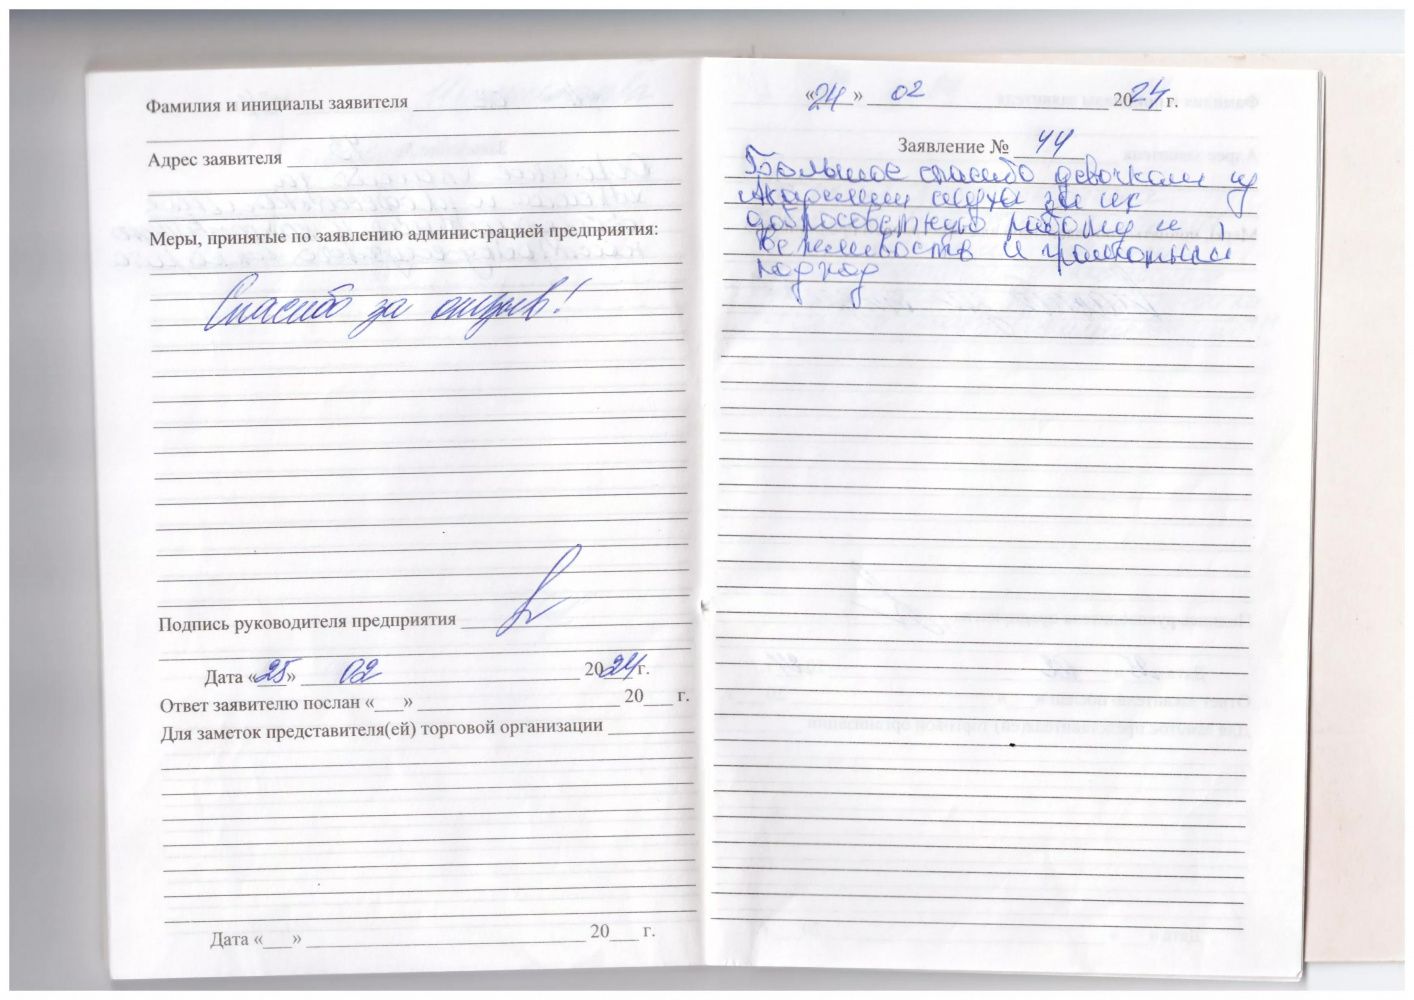 Фамилия и инициалы заявителя
Адрес заявителя
Меры, принятые по заявлению администрацией предприятия:
Спасибо за отзыв!
Подпись руководителя предприятия
Дата «25» 02 2024 г.
Ответ заявителю послан «___» 20___ г.
Для заметок представителя(ей) торговой организации
Дата «___» 20___ г.
«24» 02 2024 г.
Заявление № 44
Большое спасибо девочкам из
Академии слуха за их
добросоветную работу и
вежливость и грамотный
подход